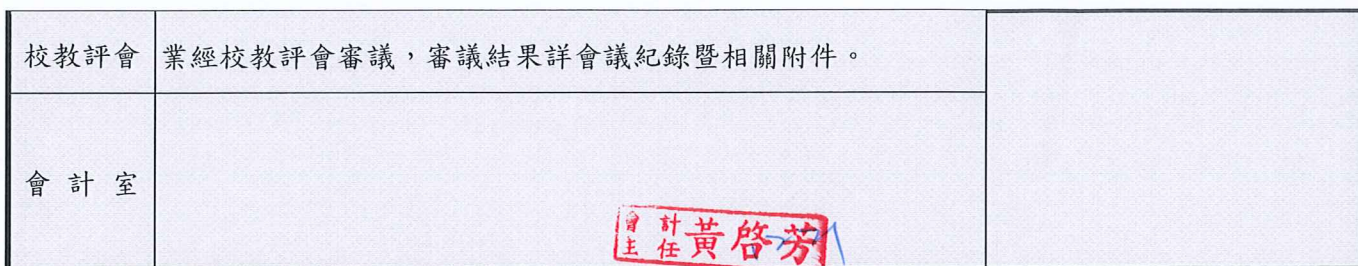 校教評會 業經校教評會審議，審議結果詳會議紀錄暨相關附件。
會計室
會計主任 黃啓芳